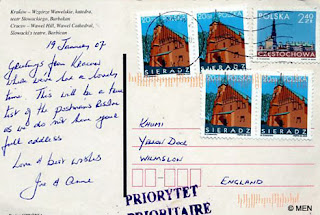 Kraków - Wzgórze Wawelskie, katedra,
teatr Słowackiego, Barbakan
Cracow - Wawel Hill, Wawel Cathedral,
Słowacki's teatre, Barbican
19 January 07
Greetings from Krakow
where we have had a lovely
time. This will be a true
test of the postman's
as we do not have your
full address
Love & best wishes
Joe & Anne
POLSKA
SIERADZ
POLSKA
SIERADZ
POLSKA 2,40 ZŁ
CZĘSTOCHOWA
POLSKA
SIERADZ
POLSKA
SIERADZ
KHUMI
YELLOW DOOR
WILMSLOW
ENGLAND
PRIORYTET
PRIORITAIRE
© MEN